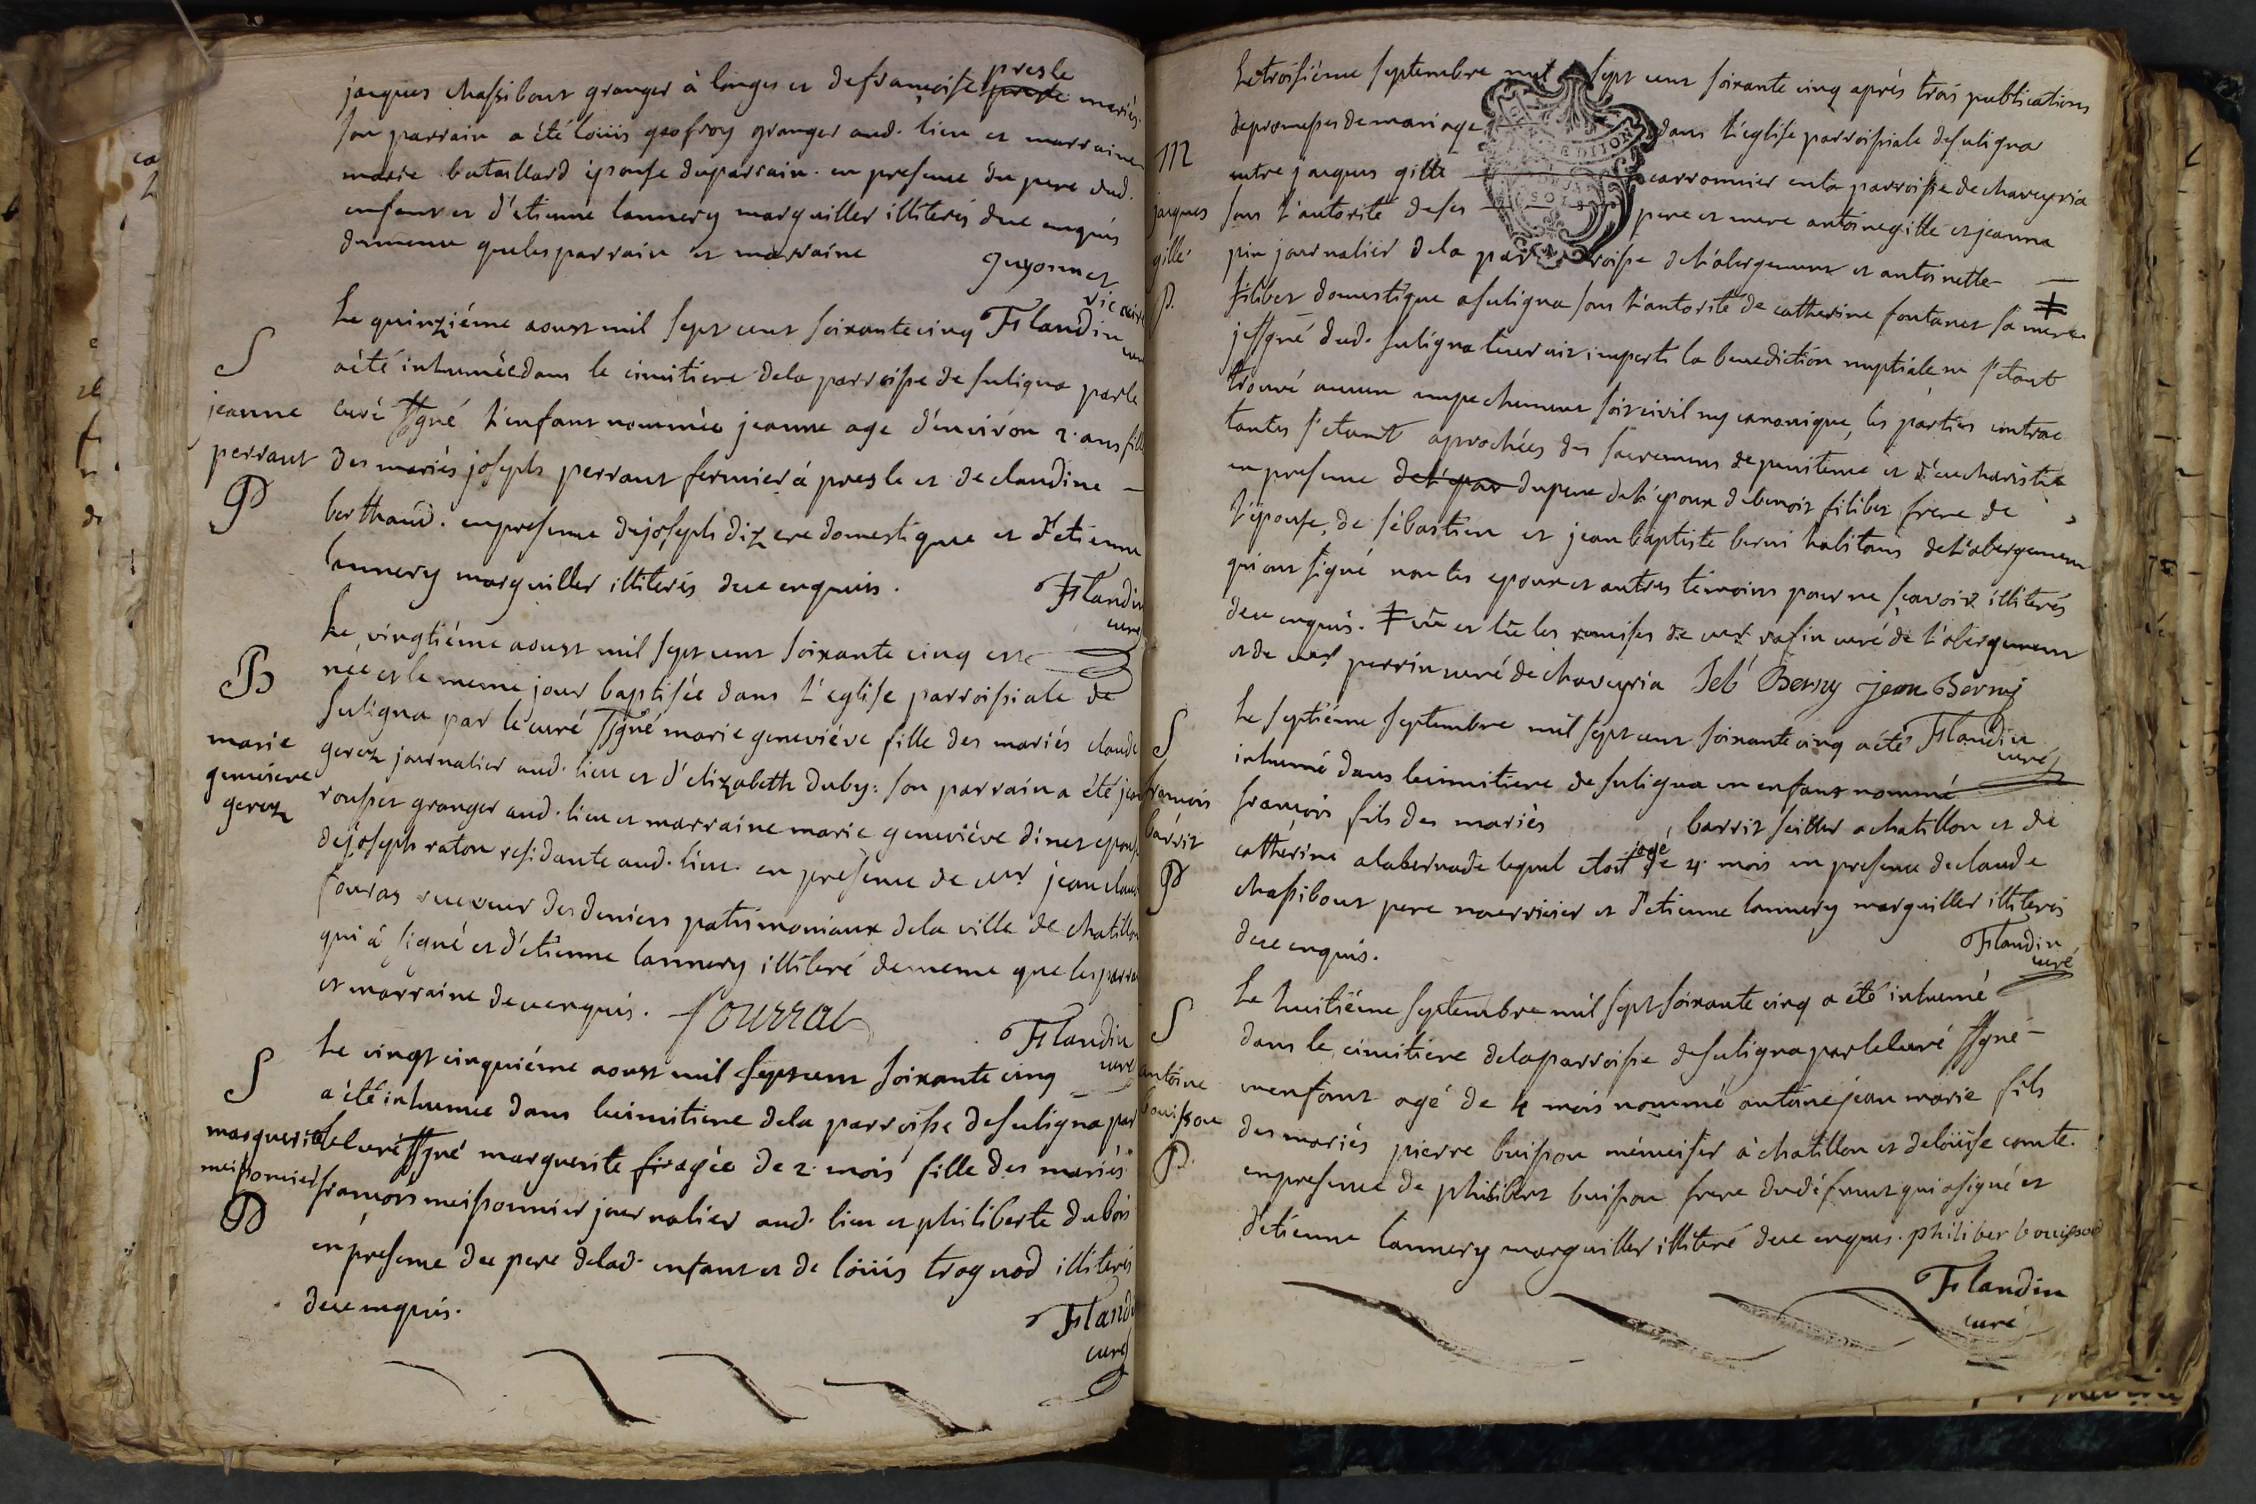 presle
jacques chassibout granger à longes et de françoise presle mariés.
son parrain a été loüis geofroy granger aud. lieu et marraine
marie bataillard épouse du parrain. en presence du pere dud.
enfant et d'etienne lannery marguiller illiterés due enquis
de meme que les parrain et marraine
Guyonnet
vicaire
S
jeanne
perraut
P
Le quinziéme aoust mil sept cent soixante cinq Flandin
a été inhumée dans le cimitiere de la parroisse de suligna par le
curé ssgné l'enfant nommée jeanne age d'environ 2. ans fille
des mariés joseph perraut fermier à presle et de claudine —
berthaud. en presence de joseph dizere domestique et d'etienne
lannery marguiller illiterés due enquis.
Flandin
curé
B
marie
geneviéve
gerez
Le vingtiéme aoust mil sept cent soixante cinq est
née et le meme jour baptisée dans l'eglise parroissiale de
suligna par le curé ssgné marie geneviéve fille des mariés claude
gerez journalier aud. lieu et d'elizabeth duby: son parrain a été jean
rousset granger aud. lieu et marraine marie geneviéve dinet epouse
de joseph raton residante aud. lieu. en presence de mr jean claude
fouras receveur des deniers patrimoniaux de la ville de chatillon
qui à signé et d'etienne lannery illiteré de meme que les parrain
et marraine due enquis. fourras
Flandin
curé
S
marguerite
meissonnier
P
Le vingt cinquiéme aoust mil sept cent soixante cinq
a été inhumée dans le cimitiere de la parroisse de suligna par
le curé ssgné marguerite agée de 2. mois fille des mariés
françois meissonnier journalier aud. lieu et philiberte dubois
en presence du pere de lad. enfant et de loüis trognod illiterés
due enquis.
Flandin
curé
M
jacques
gille
P.
Le troisiéme septembre mil sept cent soixante cinq aprés trois publications
de promesses de mariage dans l'eglise parroissiale de suligna
entre jacques gille carronnier en la parroisse de chaveyria
sous l'autorité de ses pere et mere antoine gille et jeanna
pin journalier de la parroisse de l'abergement et antoinette —
filibet domestique a suligna sous l'autorité de catherine fontanet sa mere ǂ
je ssgné dud. suligna leur ait imparti la benediction nuptiale ne s'etant
trouvé aucun impechement soit civil ny canonique, les parties contrac
tantes s'etant aprochées des sacremens de penitence et d'eucharistie
en presence de l'epou du pere de l'époux de benoit filibet frere de
l'épouse, de sébastien et jean baptiste berni habitans de l'abergement
qui ont signé non les epoux et autres témoins pour ne sçavoir illiterés
due enquis. ǂ vü et lü les remises de mr rafin curé de l'abergement
et de mr perrin curé de chaveyria Seb Berny jean Berny
S
françois
barrit
P
Le septiéme septembre mil sept cent soixante cinq a été Flandin
curé
inhumé dans le cimitiere de suligna un enfant nommé
françois fils des mariés barrit seiller a chatillon et de
catherine alabernade lequel etoit agé de 4. mois en presence de claude
chassibout pere nourricier et d'etienne lannery marguiller illiterés
due enquis.
Flandin
curé
S
antoine
bouisson
P.
Le huitiéme septembre mil sept soixante cinq a été inhumé
dans le cimitiere de la parroisse de suligna par le curé ssgné —
un enfant agé de 4 mois nommé antoine jean marie fils
des mariés pierre buisson menuisier à chatillon et de loüise comte.
en presence de philibert buisson frere du défunt qui a signé et
d'etienne lannery marguiller illiteré due enquis. philiber bouisson
Flandin
curé